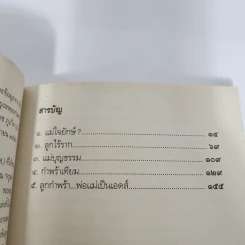 สารบัญ
๑. แม่ใจยักษ์? ๑๔
๒. ลูกไร้ราก ๖๙
๓. แม่บุญธรรม ๑๐๙
๔. กำพร้าเทียม ๑๒๙
๕. ลูกกำพร้า...พ่อแม่เป็นเอดส์ ๑๕๕